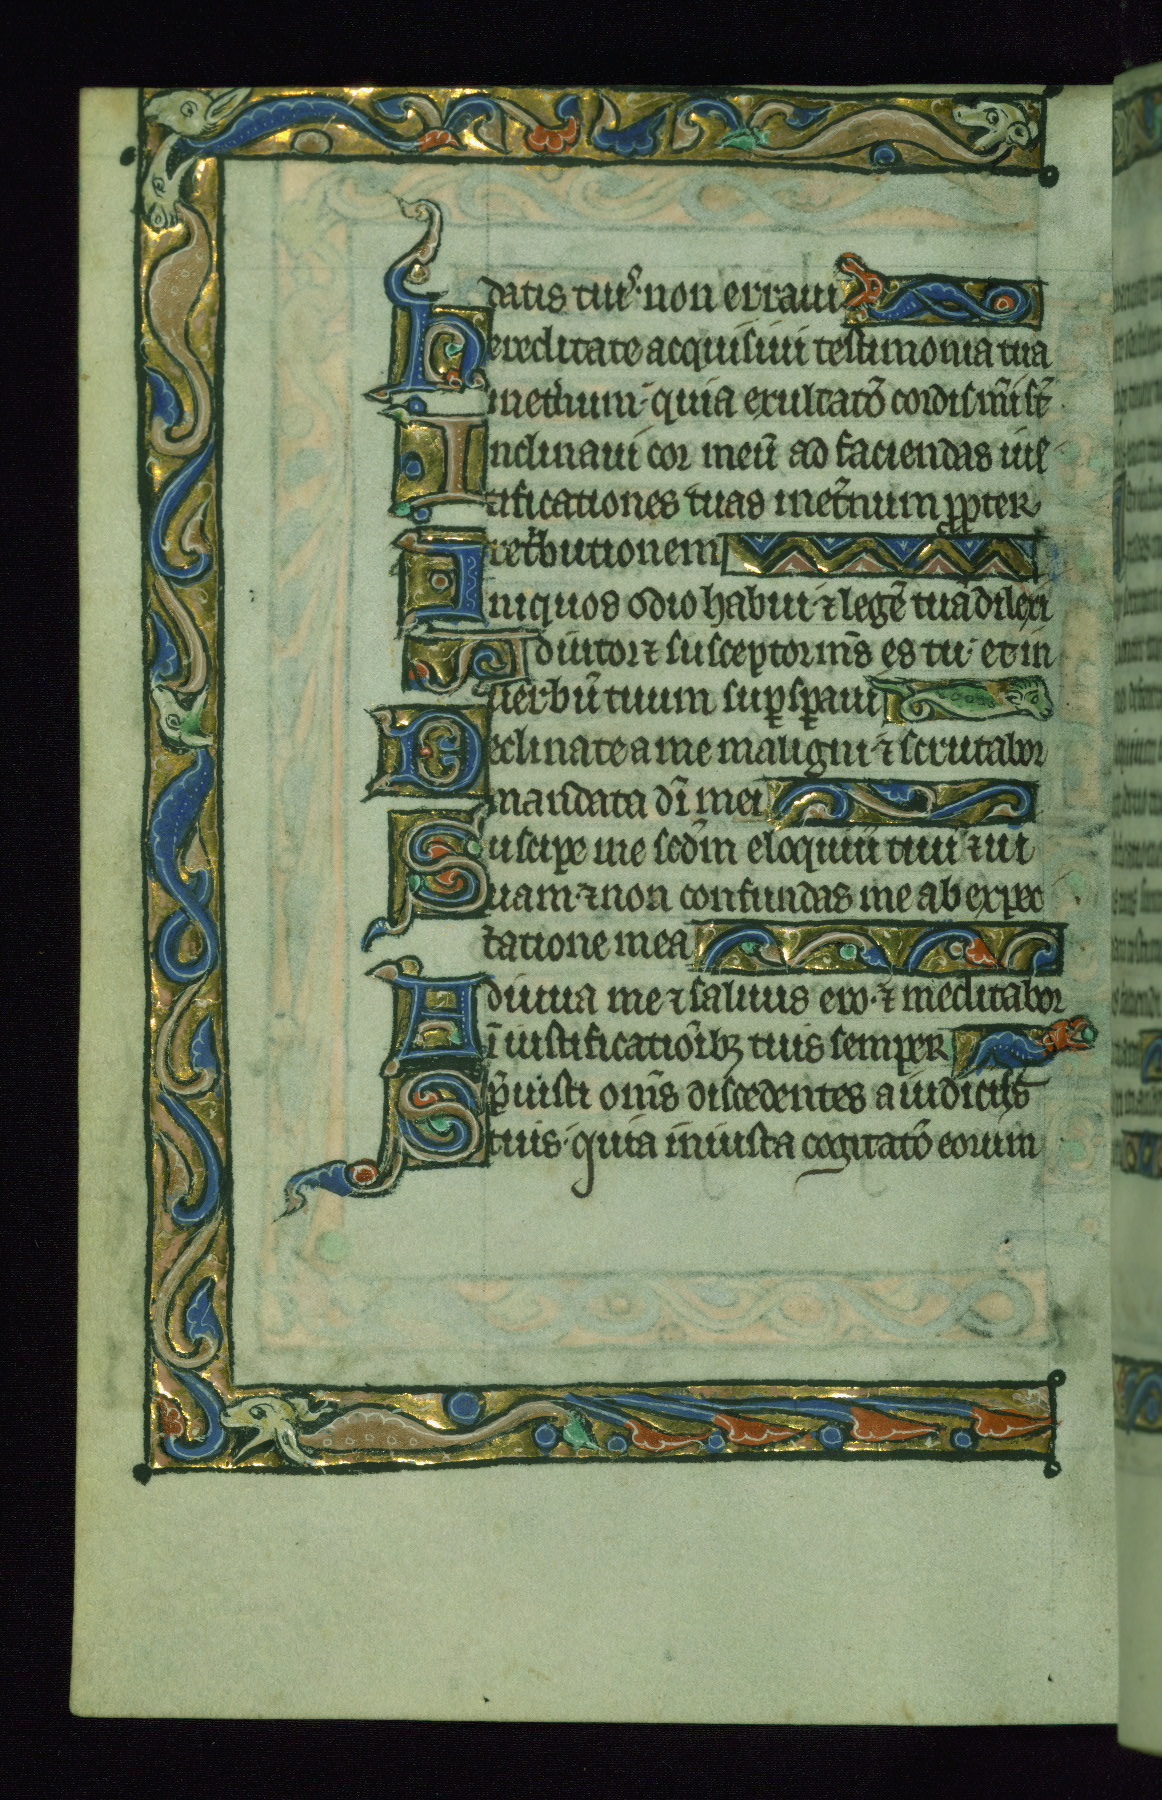 datis tuis non erraui
Hereditate acquisiui testimonia tua
inet̄num· quia exultatō cordis m̄i st̄
Inclinaui cor meū ad faciendas iuſ
tificationes tuas inet̄num ꝓpter
ret̄butionem
Iniquos odio habui ⁊ legē tuā dilexi
Adiutor ⁊ susceptor m̄s es tu· et in
uerbū tuum suꝑsꝑaui
Declinate a me maligni ⁊ scrutabor
mandata dī mei
Suscipe me scdm̄ eloquiū tuū ⁊ ui
uam· ⁊ non confundas me ab expec
tatione mea
Adiuua me ⁊ saluus ero· ⁊ meditabor
ī iustificatiōibꝫ tuis semper
Sp̄uisti om̄s discedentes a iudiciis
tuis· quia iniusta cogitatō eorum